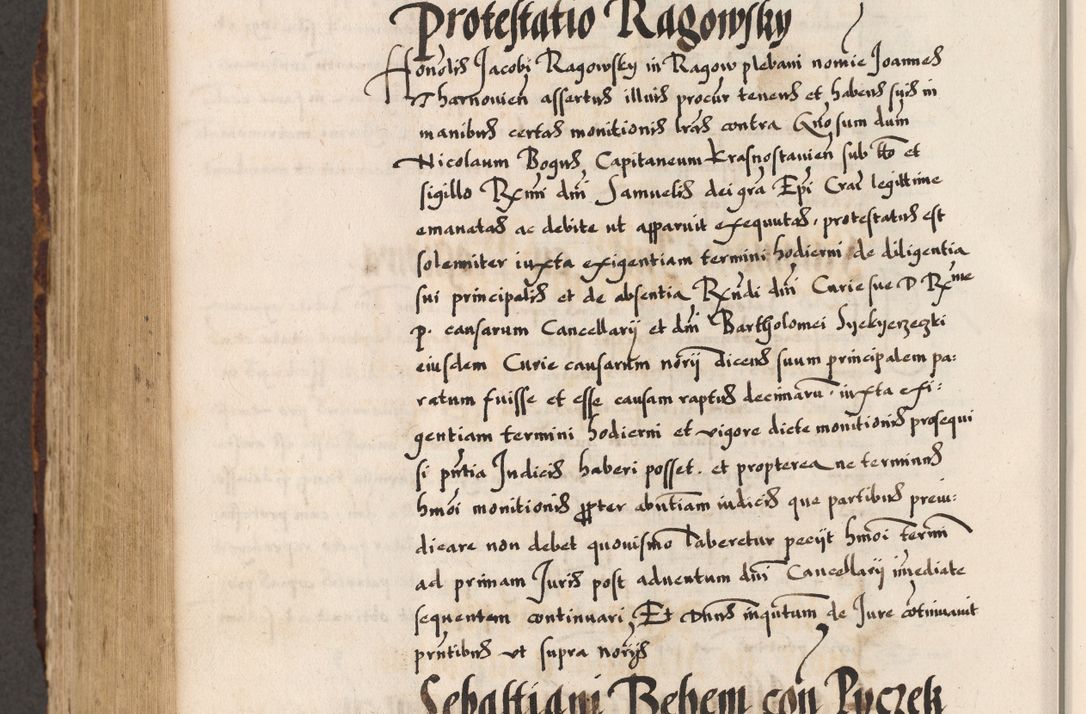 Protestatio Ragowsky
Honolis Jacobi Ragowsky in Ragow plebani nomie Joannes
Tharnovien assertus illius procur tenens et habens suis in
manibus certas monitionis lras contra Gnosum dum
Nicolaum Bogus, Capitaneum Krasnostavien sub tto et
sigillo Rxmi dni Samuelis dei gra Epi Crac legittime
emanatas ac debite ut apparuit exequutas, protestatus est
solemniter iuxta exigentiam termini hodierni de diligentia
sui principalis et de absentia Rxndi dni Curie sue D Rxme
p. causarum Cancellarij et dni Bartholomei
eiusdem Curie causarum norij dicens suum principalem pa:
ratum fuisse et esse causam raptus decimaru iuxta exi:
gentiam termini hodierni et vigore dicte monitionis prosequi
si pntia Judicis haberi posset. et propterea ne terminus
hmoi monitionis ppter abntiam iudicis que partibus preiu:
dicare non debet quovismo laberetur pecijt hmoi termi
ad primam Juris post adventum dni Cancellarij imediate
sequentem continuari, Et Dnus inqutum de Jure cotinuavit
pntibus ut supra norijs
Sebastiani Behem con Pyczek